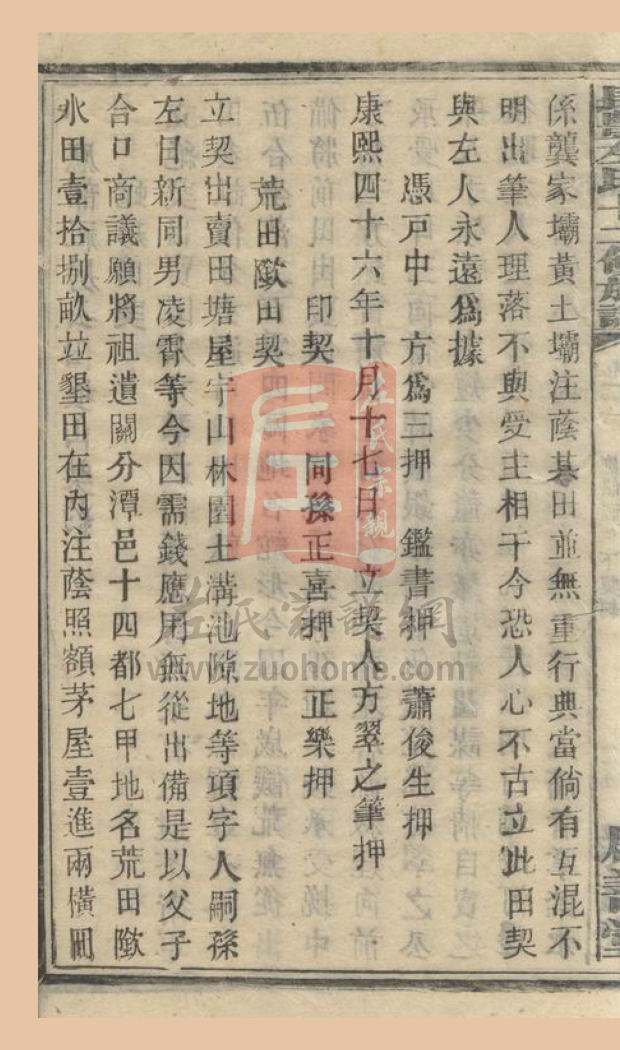 係龔家壩黃土壩注蔭碁田並無重行典當倘有互混不
明出筆人理落不與受主相干今恐人心不古立此田契
與左人永遠爲據
憑戸中 方爲三押 鑑書押 蕭俊生押
康熙四十六年十月十七日 立契人方翠之筆押
印契 同孫正喜押 正樂押
荒田歟田契
立契出賣田塘屋宇山林園土溝池隙地等項字人嗣孫
左日新同男凌霄等今因需錢應用無從出備是以父子
合口商議願將祖遺關分潭邑十四都七甲地名荒田歟
水田壹拾捌畝竝墾田在內注蔭照額茅屋壹進兩橫
左氏宗親
左氏宗譜網
www.zuohome.com